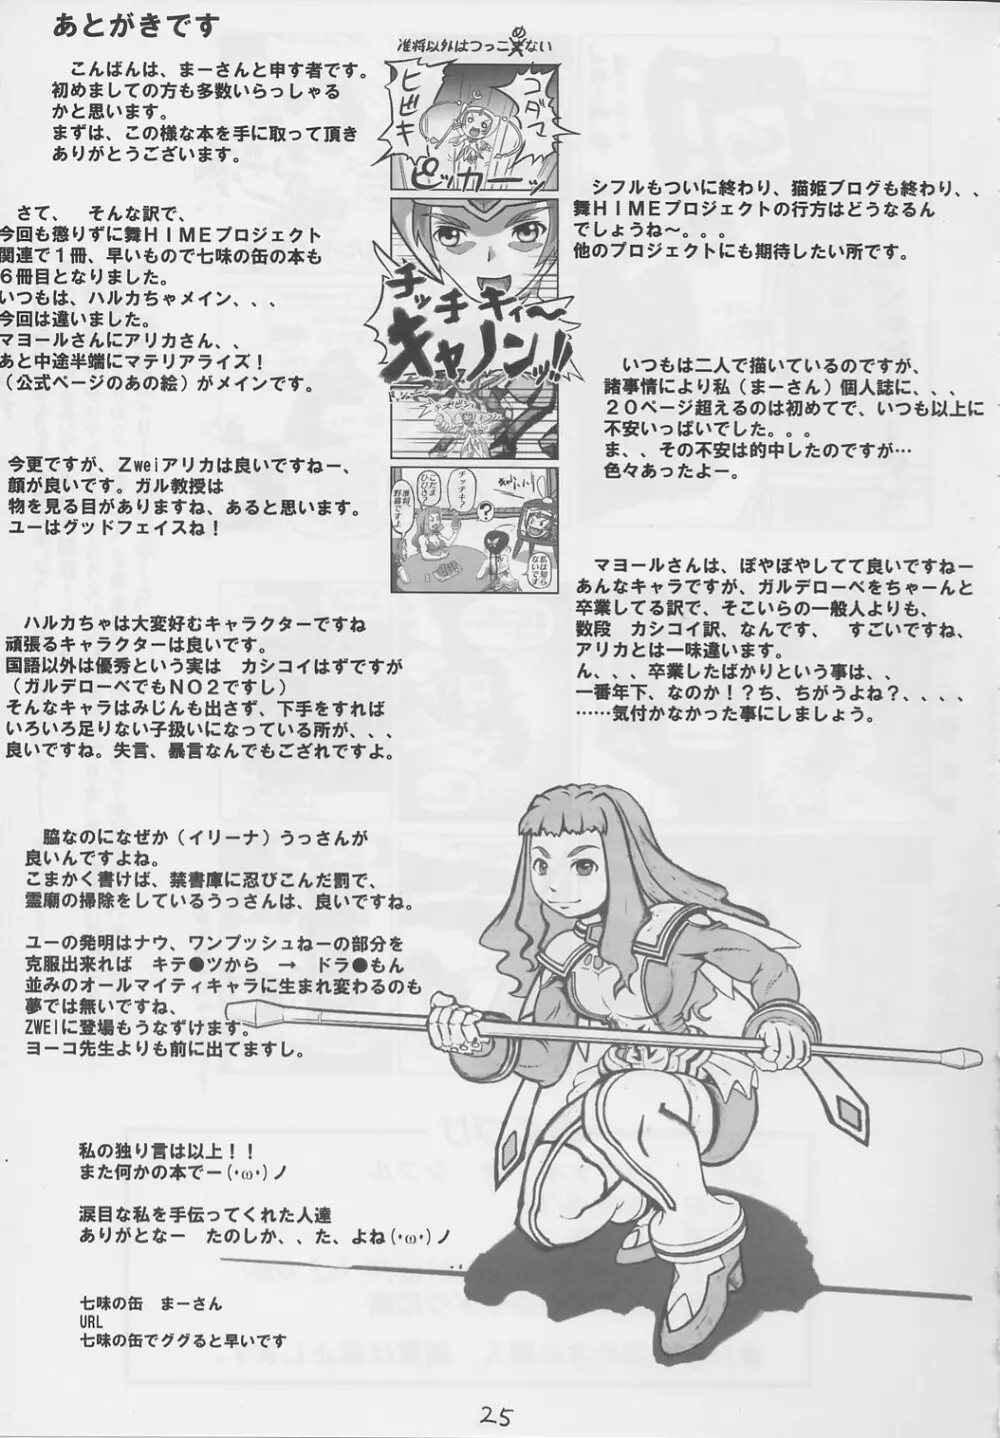 あとがきです
こんばんは、まーさんと申す者です。
初めましての方も多数いらっしゃる
かと思います。
まずは、この様な本を手に取って頂き
ありがとうございます。
さて、　そんな訳で、
今回も懲りずに舞ＨＩＭＥプロジェクト
関連で１冊、早いもので七味の缶の本も
６冊目となりました。
いつもは、ハルカちゃメイン、、、
今回は違いました。
マヨールさんにアリカさん、、
あと中途半端にマテリアライズ！
（公式ページのあの絵）がメインです。
今更ですが、Ｚｗｅｉアリカは良いですねー、
顔が良いです。ガル教授は
物を見る目がありますね、あると思います。
ユーはグッドフェイスね！
ハルカちゃは大変好むキャラクターですね
頑張るキャラクターは良いです。
国語以外は優秀という実は　カシコイはずですが
（ガルデローベでもＮＯ２ですし）
そんなキャラはみじんも出さず、下手をすれば
いろいろ足りない子扱いになっている所が、、、
良いですね。失言、暴言なんでもござれですよ。
脇なのになぜか（イリーナ）うっさんが
良いんですよね。
こまかく書けば、禁書庫に忍びこんだ罰で、
霊廟の掃除をしているうっさんは、良いですね。
ユーの発明はナウ、ワンプッシュねーの部分を
克服出来れば　キテ●ツから　→　ドラ●もん
並みのオールマイティキャラに生まれ変わるのも
夢では無いですね、
ZWEIに登場もうなずけます。
ヨーコ先生よりも前に出てますし。
私の独り言は以上！！
また何かの本でー(･ω･)ノ
涙目な私を手伝ってくれた人達
ありがとなー　たのしか、、た、よね(･ω･)ノ
七味の缶　まーさん
URL
七味の缶でググると早いです
准将以外はつっこめない
コダマ
ヒビキ
ピッカーッ
チッチキィ～
キャノンッ!!
ズビシ!
チッチキ?
こだま
ひびき?
准将、
野暮ですよ
?
私は知ら
ないです
シフルもついに終わり、猫姫ブログも終わり、、
舞ＨＩＭＥプロジェクトの行方はどうなるん
でしょうね～。。。
他のプロジェクトにも期待したい所です。
いつもは二人で描いているのですが、
諸事情により私（まーさん）個人誌に、、、
２０ページ超えるのは初めてで、いつも以上に
不安いっぱいでした。。。
ま、、その不安は的中したのですが…
色々あったよー。
マヨールさんは、ぽやぽやしてて良いですねー
あんなキャラですが、ガルデローベをちゃーんと
卒業してる訳で、そこいらの一般人よりも、
数段　カシコイ訳、なんです、　すごいですね、
アリカとは一味違います。
ん、、、卒業したばかりという事は、、
一番年下、なのか！？ち、ちがうよね？、、、、
……気付かなかった事にしましょう。
25